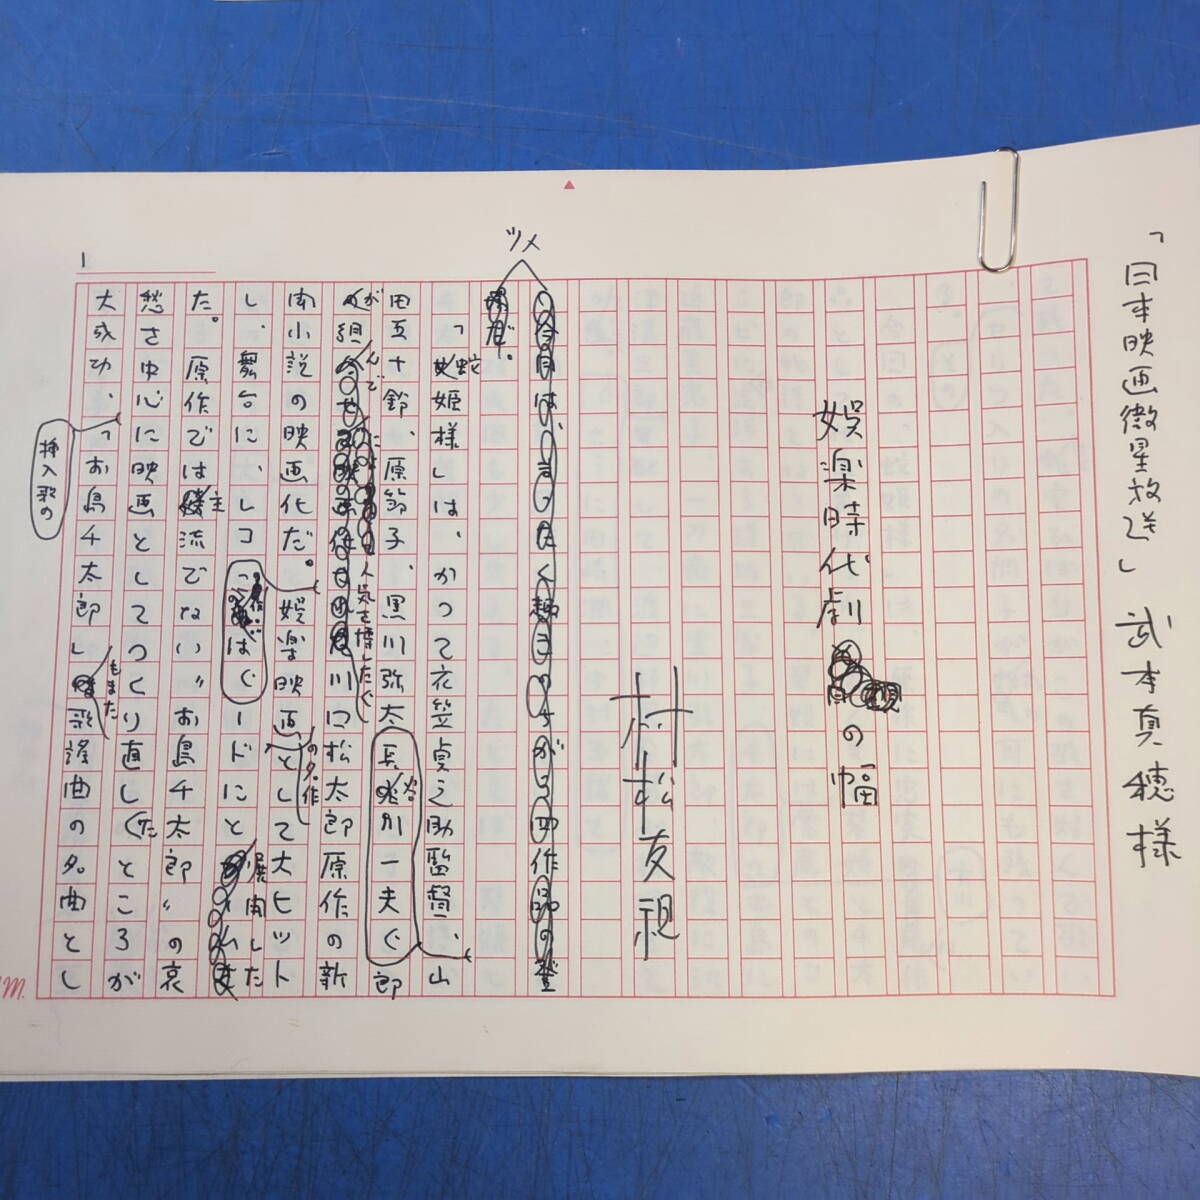 「日本映画微星放送」 武本真穂様
娯楽時代劇の幅
村松友視
ツメ
今月は、まったく趣きのちがう四作品の登
場だ。
「蛇姫様」は、かつて衣笠貞之助監督、山
田五十鈴、原節子、黒川弥太郎
長谷川一夫
が組んで
人気を博した
川口松太郎原作の新
の名作
聞小説の映画化だ。娯楽映画として大ヒット
し、舞台に、レコードにと展開した
た。原作では主流でない〝お島千太郎〟の哀
愁を中心に映画としてつくり直したところが
大成功、「お島千太郎」
もまた
歌謡曲の名曲とし
挿入歌の
1